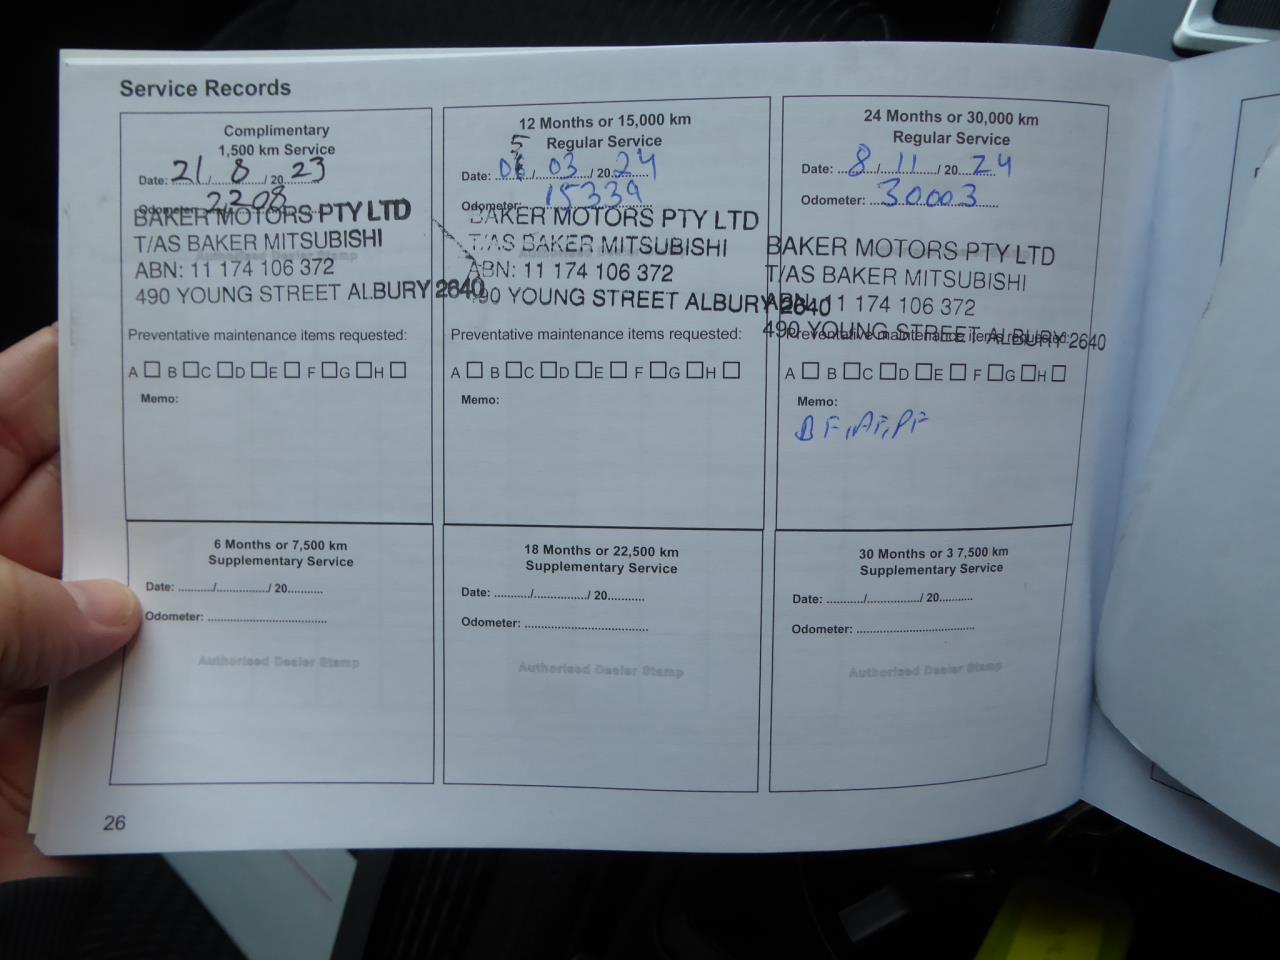 Service Records
Complimentary
1,500 km Service
Date: 21 / 8 / 20 23
Odometer: 2208
BAKER MOTORS PTY LTD
T/AS BAKER MITSUBISHI
ABN: 11 174 106 372
490 YOUNG STREET ALBURY 2640
Preventative maintenance items requested:
A B C D E F G H
Memo:
12 Months or 15,000 km
Regular Service
5
Date: 06 / 03 / 20 24
Odometer: 15339
BAKER MOTORS PTY LTD
T/AS BAKER MITSUBISHI
ABN: 11 174 106 372
490 YOUNG STREET ALBURY 2640
Preventative maintenance items requested:
A B C D E F G H
Memo:
24 Months or 30,000 km
Regular Service
Date: 8 / 11 / 20 24
Odometer: 30003
BAKER MOTORS PTY LTD
T/AS BAKER MITSUBISHI
ABN: 11 174 106 372
490 YOUNG STREET ALBURY 2640
Preventative maintenance items requested:
A B C D E F G H
Memo:
BF, AF, PF
6 Months or 7,500 km
Supplementary Service
Date: ........../.............../ 20..........
Odometer: ..................................
Authorised Dealer Stamp
18 Months or 22,500 km
Supplementary Service
Date: ........../.............../ 20..........
Odometer: ..................................
Authorised Dealer Stamp
30 Months or 3 7,500 km
Supplementary Service
Date: ........../.............../ 20..........
Odometer: ..................................
Authorised Dealer Stamp
26